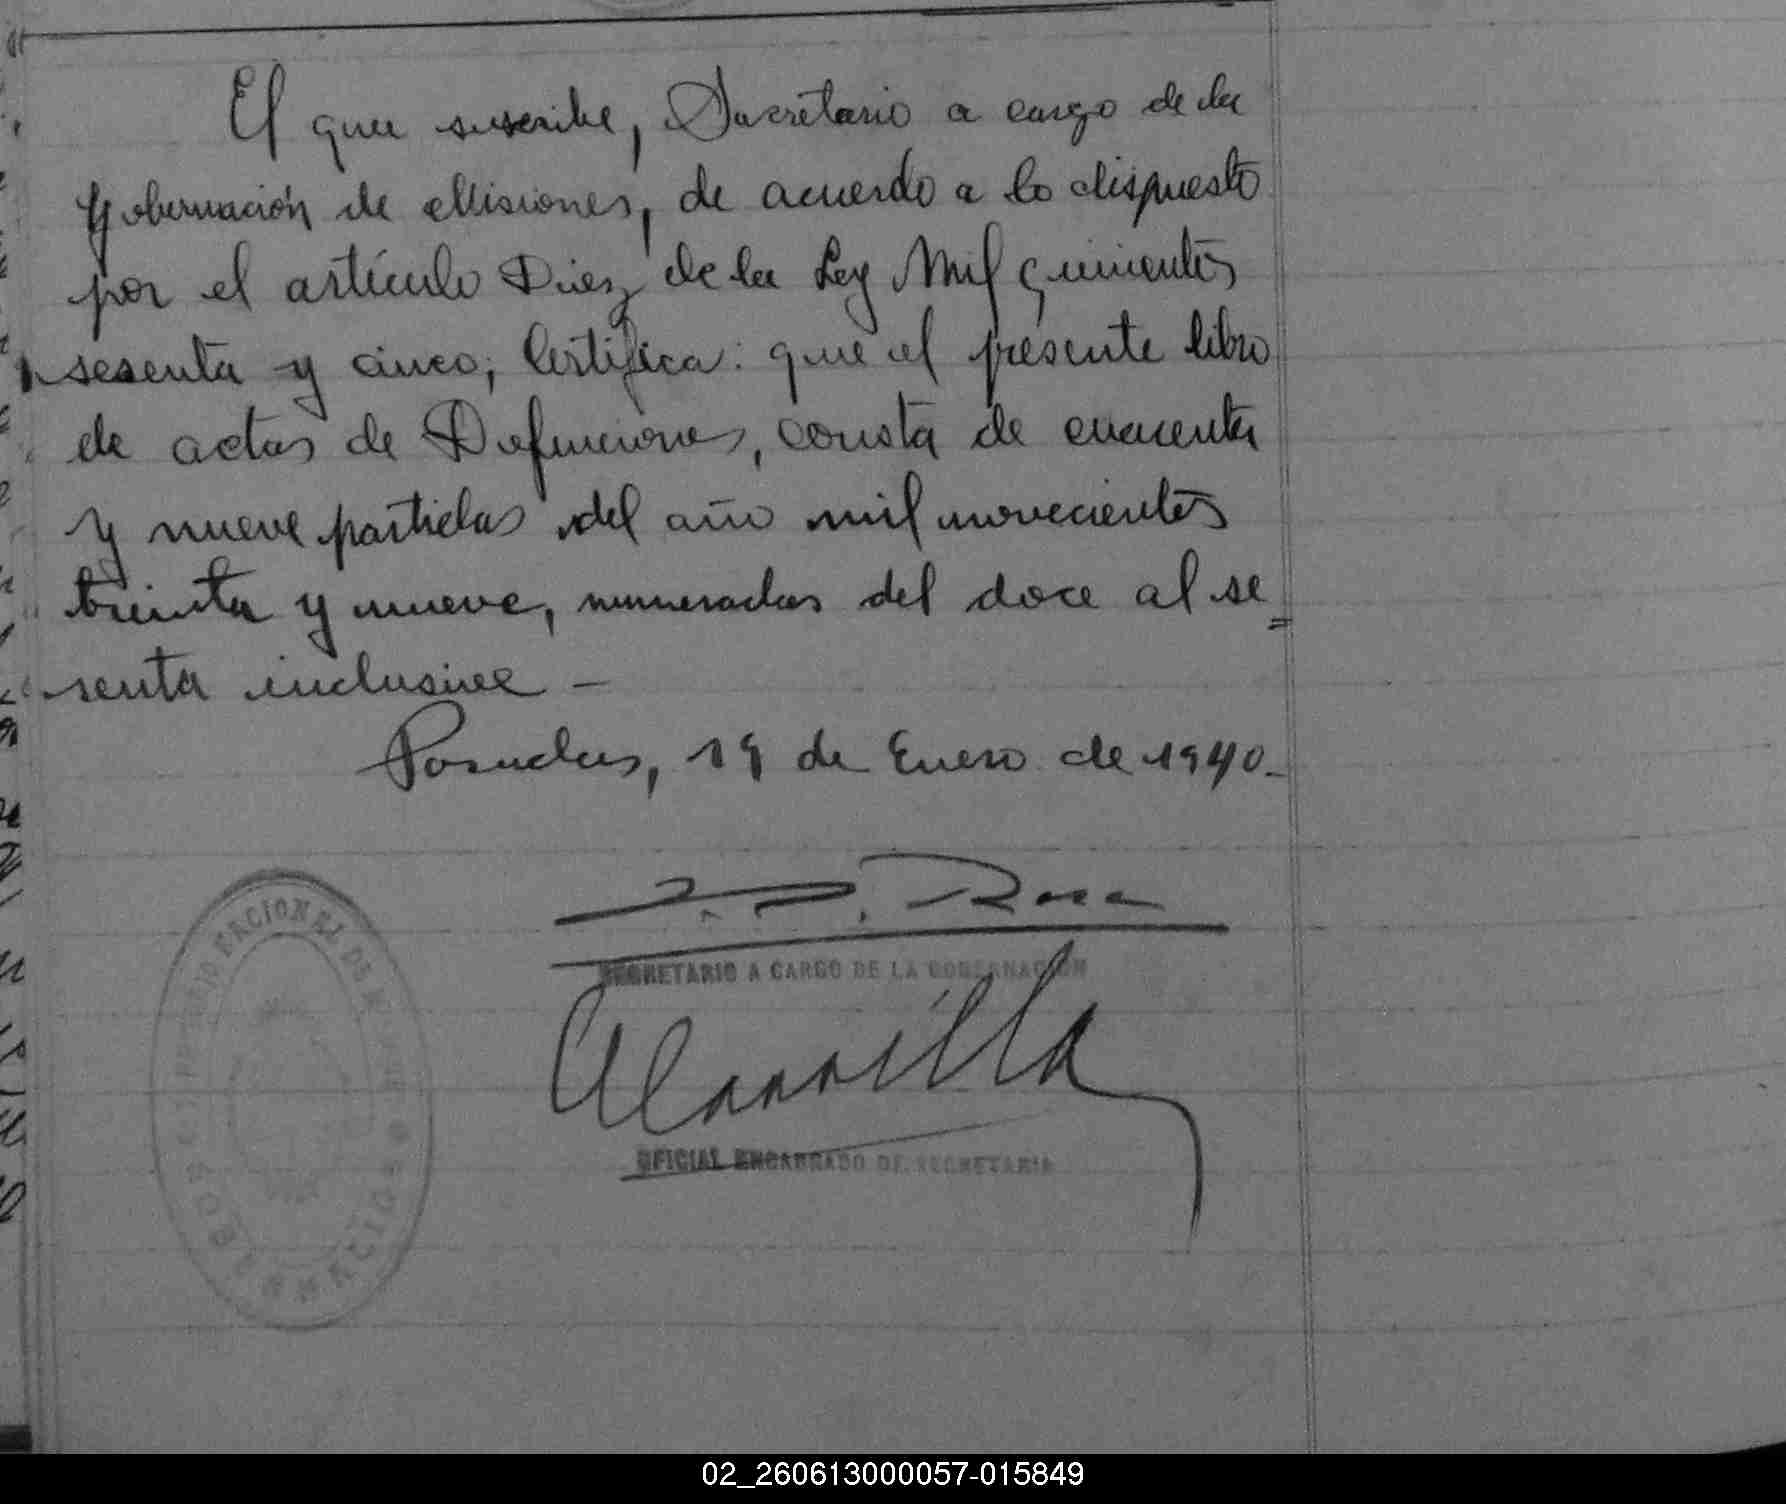 El que suscribe, Secretario a cargo de la
Gobernación de Misiones, de acuerdo a lo dispuesto
por el artículo Diez de la Ley Mil quinientos
sesenta y cinco; Certifica: que el presente libro
de actas de Defunciones, consta de cuarenta
y nueve partidas del año mil novecientos
treinta y nueve, numeradas del doce al se=
senta inclusive –
Posadas, 19 de Enero de 1940.-
Rosa
SECRETARIO A CARGO DE LA GOBERNACION
OFICIAL ENCARGADO DE SECRETARIA
02_260613000057-015849